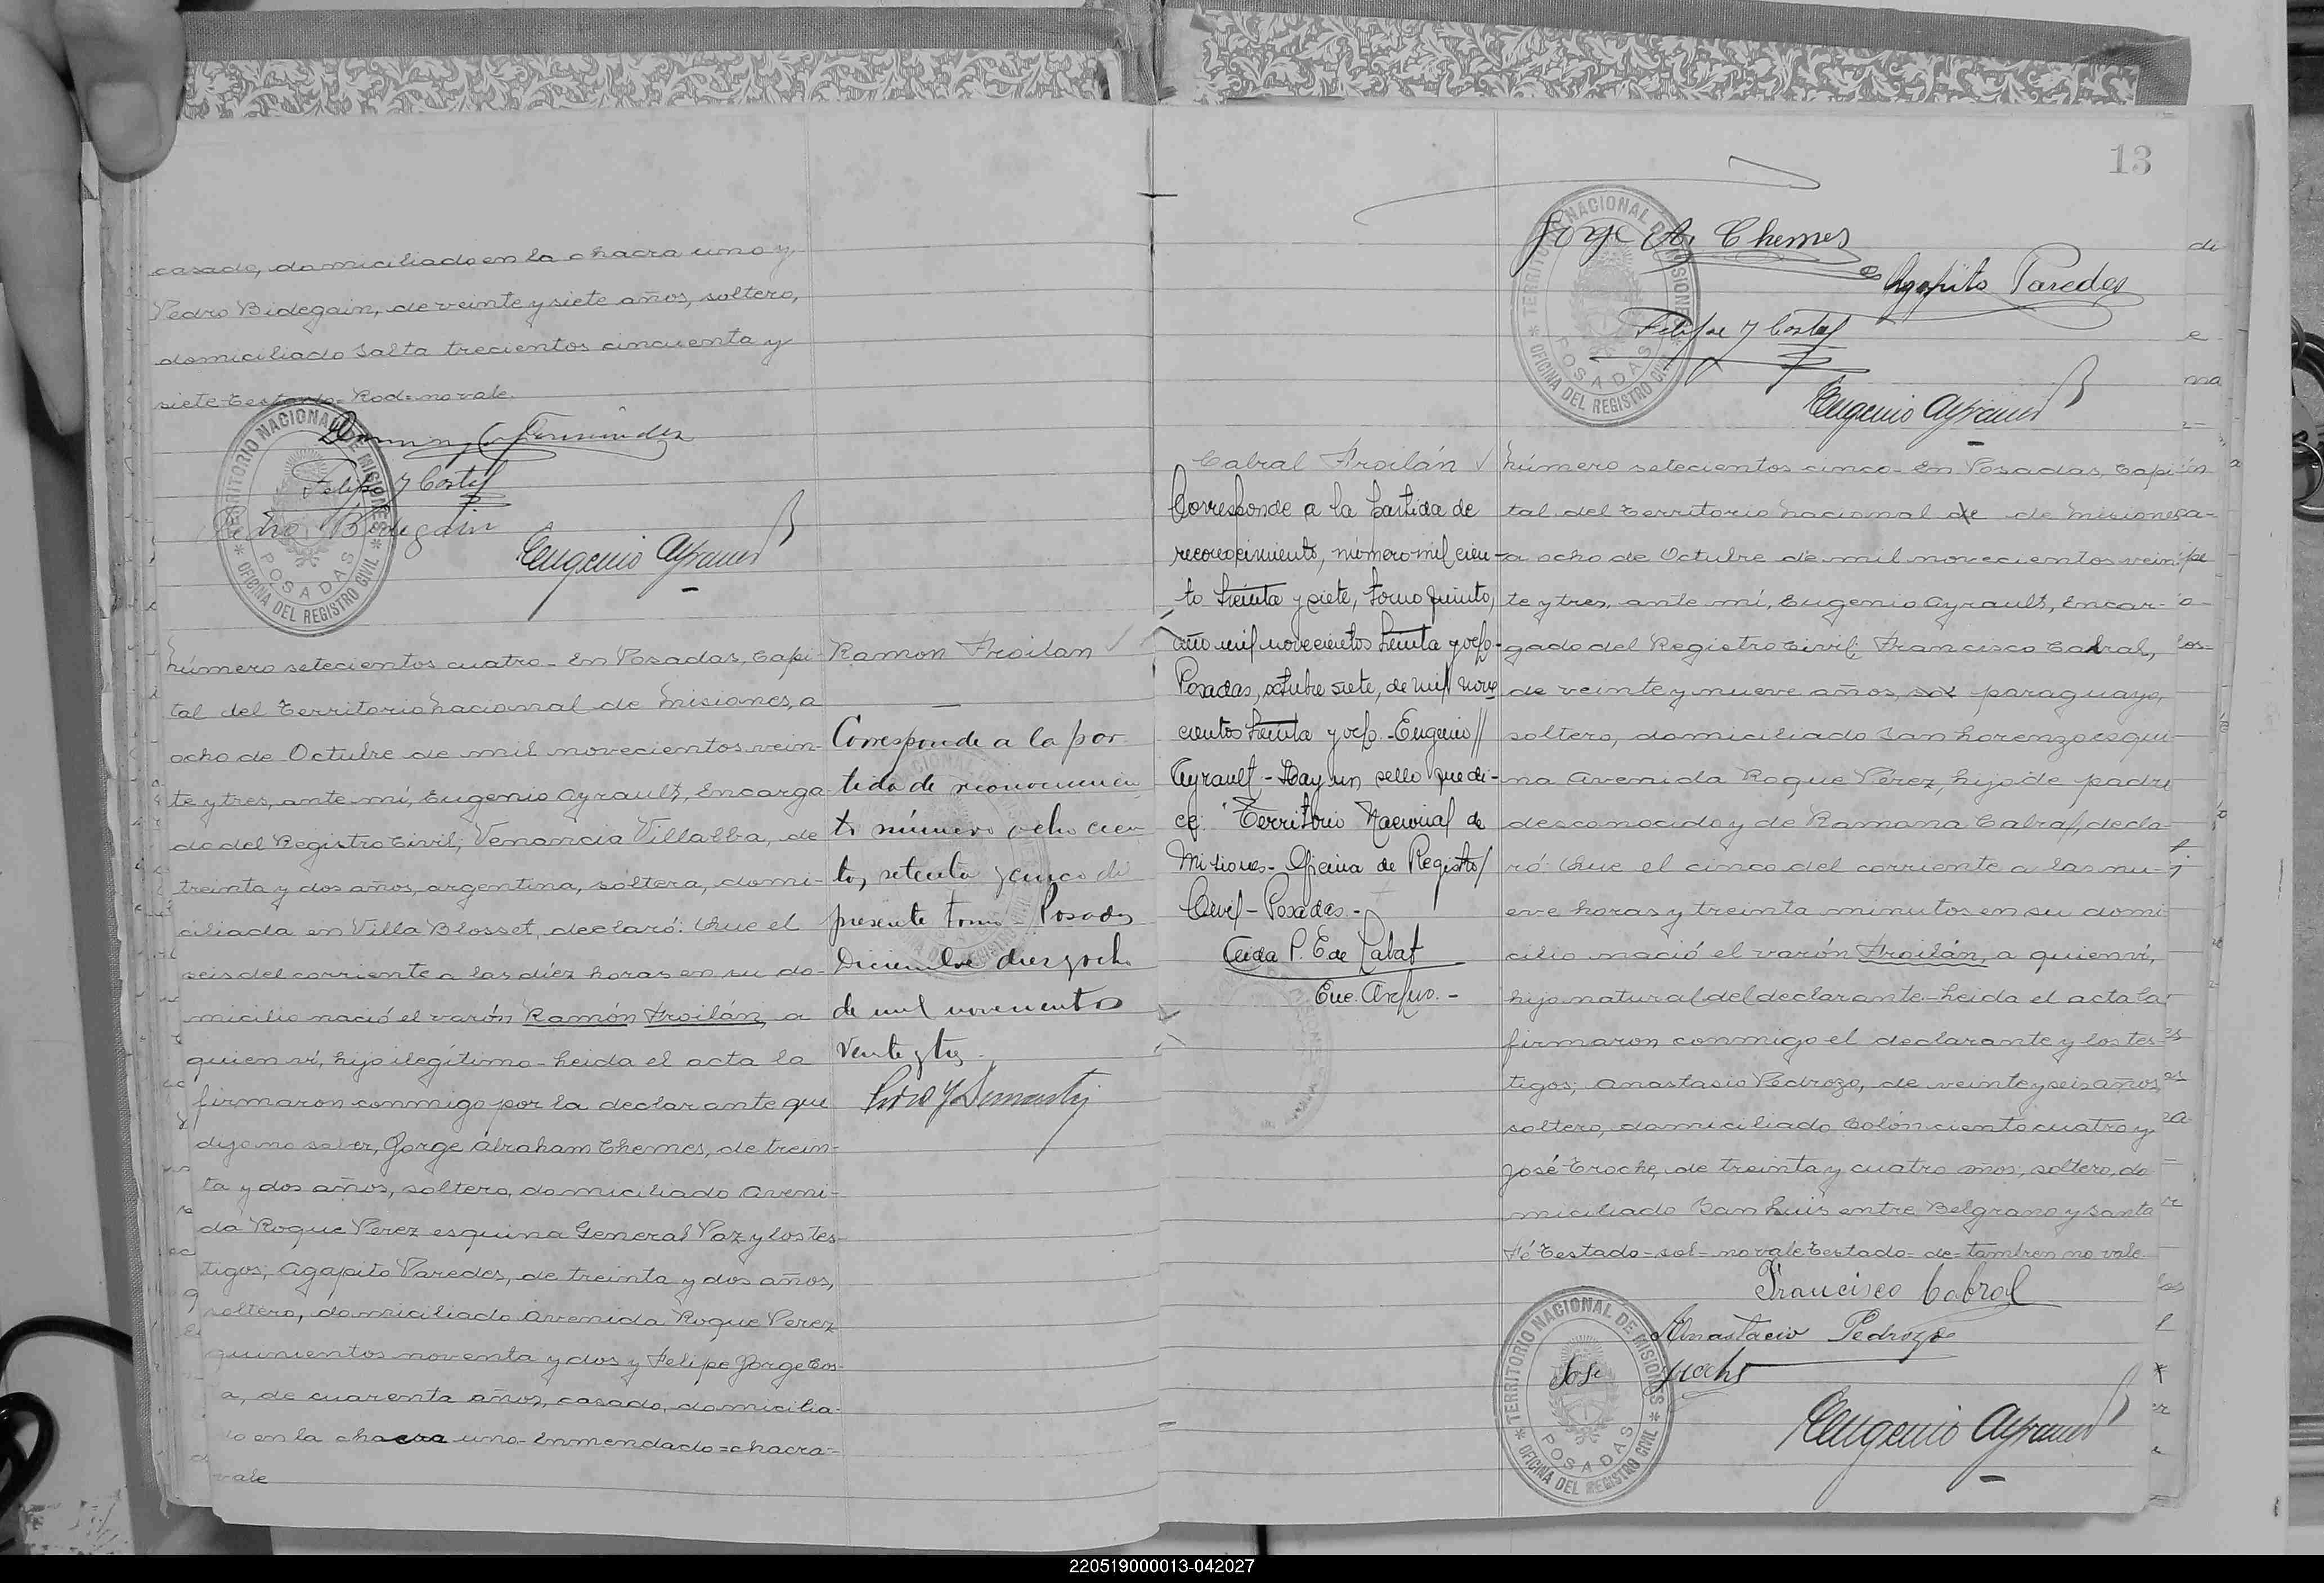 casado, domiciliado en la chacra uno y
Pedro Bidegain, de veinte y siete años, soltero,
domiciliado Salta trecientos cincuenta y
siete Testado= Rod= no vale.
Felipe J Costas
Pedro Bidegain
Eugenio Ayrault
TERRITORIO NACIONAL DE MISIONES
POSADAS
* OFICINA DEL REGISTRO CIVIL *
Número setecientos cuatro - En Posadas, Capi-
tal del Territorio Nacional de Misiones, a
ocho de Octubre de mil novecientos vein-
te y tres, ante mí, Eugenio Ayrault, Encarga
do del Registro Civil; Venancia Villalba, de
treinta y dos años, argentina, soltera, domi-
ciliada en Villa Blosset, declaró: Que el
seis del corriente a las díez horas en su do-
micilio nació el varón Ramón Froilán, a
quien ví, hijo ilegítimo - Leida el acta la
firmaron conmigo por la declarante que
dijo no saber, Jorge Abraham Chemes, de trein-
ta y dos años, soltero, domiciliado Aveni-
da Roque Perez esquina General Paz y los tes-
tigos; Agapito Paredes, de treinta y dos años,
soltero, domiciliado Avenida Roque Perez
quinientos noventa y dos y Felipe Jorge Cos-
a, de cuarenta años, casado, domicilia-
do en la chacra uno - Enmendado = chacra -
vale
Ramon Froilan
Corresponde a la par
tida de reconocimien
to número ocho cien
tos setenta y cinco del
presente tomo Posadas
Diciembre diez y ocho
de mil novecientos
veinte y tres.
13
Jorge A. Chemes
Agapito Paredes
Felipe J Costas
Eugenio Ayrault
TERRITORIO NACIONAL DE MISIONES
POSADAS
* OFICINA DEL REGISTRO CIVIL *
Cabral Froilán
Corresponde a la Partida de
reconocimiento, número mil cien-
to treinta y siete, tomo quinto,
año mil novecientos treinta y ocho-
Posadas, octubre siete, de mil nove
cientos treinta y ocho - Eugenio //
Ayrault - Hay un sello que di-
ce: "Territorio Nacional de
Misiones - Oficina de Registro/
Civil - Posadas -
P. E de Labat
Enc.
Número setecientos cinco - En Posadas, Capi-
tal del Territorio Nacional de de Misiones
a ocho de Octubre de mil novecientos vein-
te y tres, ante mí, Eugenio Ayrault, Encar-
gado del Registro Civil; Francisco Cabral,
de veinte y nueve años, sol paraguayo,
soltero, domiciliado San Lorenzo esqui-
na Avenida Roque Pérez, hijo de padre
desconocido y de Ramona Cabral, decla-
ró: Que el cinco del corriente a las nu-
eve horas y treinta minutos en su domi
cilio nació el varón Froilán, a quien ví,
hijo natural del declarante - Leida el acta la
firmaron conmigo el declarante y los tes-
tigos; Anastasio Pedrozo, de veinte y seis años,
soltero, domiciliado Colón ciento cuatro y
José Troche, de treinta y cuatro años, soltero, do
miciliado San Luis entre Belgrano y Santa
Fé Testado - sol - no vale Testado - de - tambien no vale
Francisco Cabral
Anastacio Pedrozo
Jose
Eugenio Ayrault
TERRITORIO NACIONAL DE MISIONES
POSADAS
* OFICINA DEL REGISTRO CIVIL *
220519000013-042027